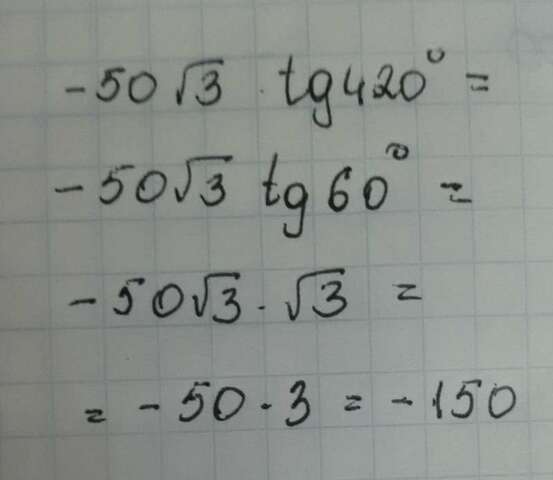 -50√3 · tg420° =
-50√3 tg60° =
-50√3 · √3 =
= -50·3 = -150